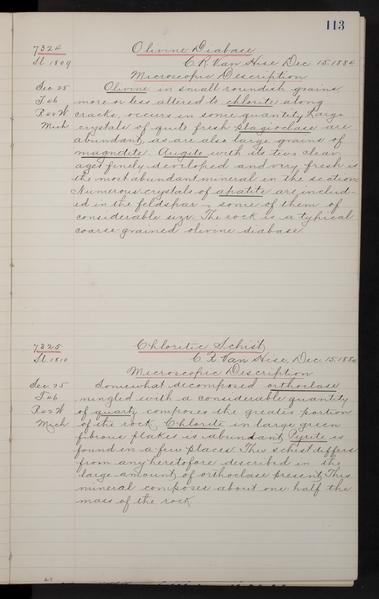 113
7324 Olivine Diabase
Sl. 1809 C. R. Van Hise, Dec. 15. 1884
Microscopic Description
Sec 25 Olivine in small roundish grains,
T 46 more or less altered to chlorite along
R 02 W cracks, occurs in some quantity. Large
Mich crystals of quite fresh plagioclase are
abundant, as are also large grains of
magnetite. Augite with its two cleav-
ages finely developed and very fresh is
the most abundant mineral in the section.
Numerous crystals of apatite are includ-
ed in the feldspar, some of them of
considerable size. The rock is a typical
coarse grained olivine diabase
7325 Chloritic Schist
Sl. 1810 C. R. Van Hise, Dec. 15. 1884
Microscopic Description
Sec. 25 Somewhat decomposed orthoclase
T 46 mingled with a considerable quantity
R 02 W of quartz composes the greater portion
Mich of the rock. Chlorite in large green
fibrous flakes is abundant. Pyrite is
found in a few places. This schist differs
from any heretofore described in the
large amount of orthoclase present. This
mineral composes about one half the
mass of the rock